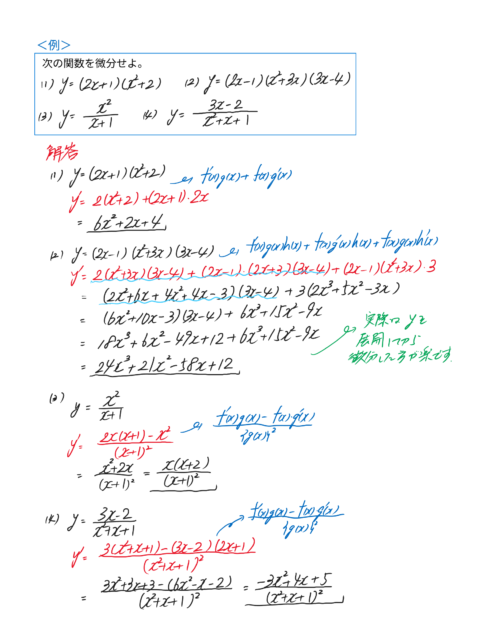 ＜例＞
次の関数を微分せよ。
(1) y=(2x+1)(x²+2) (2) y=(2x-1)(x²+3x)(3x-4)
(3) y= x²/(x+1) (4) y= (3x-2)/(x²+x+1)
解答
(1) y=(2x+1)(x²+2) f'(x)g(x)+f(x)g'(x)
y'= 2(x²+2)+(2x+1)・2x
= 6x²+2x+4
(2) y=(2x-1)(x²+3x)(3x-4) f'(x)g(x)h(x)+f(x)g'(x)h(x)+f(x)g(x)h'(x)
y'= 2(x²+3x)(3x-4)+(2x-1)(2x+3)(3x-4)+(2x-1)(x²+3x)・3
= (2x²+6x+4x²+4x-3)(3x-4)+3(2x³+5x²-3x)
= (6x²+10x-3)(3x-4)+6x³+15x²-9x
= 18x³+6x²-49x+12+6x³+15x²-9x
= 24x³+21x²-58x+12
実際は yを
展開してから
微分した方が楽です
(3) y= x²/(x+1)
y'= (2x(x+1)-x²)/(x+1)² (f'(x)g(x)-f(x)g'(x))/{g(x)}²
= (x²+2x)/(x+1)² = x(x+2)/(x+1)²
(4) y= (3x-2)/(x²+x+1) (f'(x)g(x)-f(x)g'(x))/{g(x)}²
y'= (3(x²+x+1)-(3x-2)(2x+1))/(x²+x+1)²
= (3x²+3x+3-(6x²-x-2))/(x²+x+1)² = (-3x²+4x+5)/(x²+x+1)²